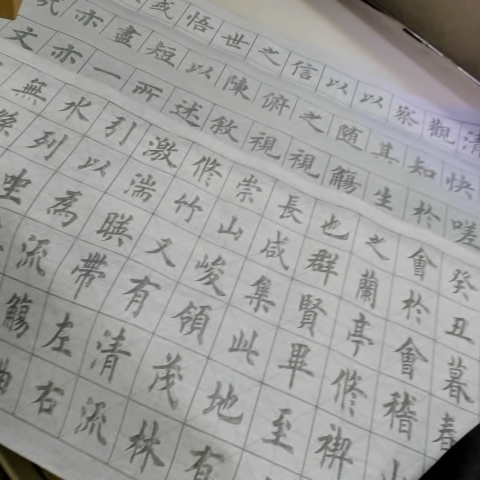 清快嗟
觀知於
察其生
以随觴
以之視
信俯視
之陳敘
世以述
悟短所
盡一
亦亦
文
癸丑暮春
會於會稽山
之蘭亭修禊
也群賢畢至
長咸集此地有
崇山峻領茂林
修竹又有清流
激湍暎帶左右
引以為流觴
水列坐
無